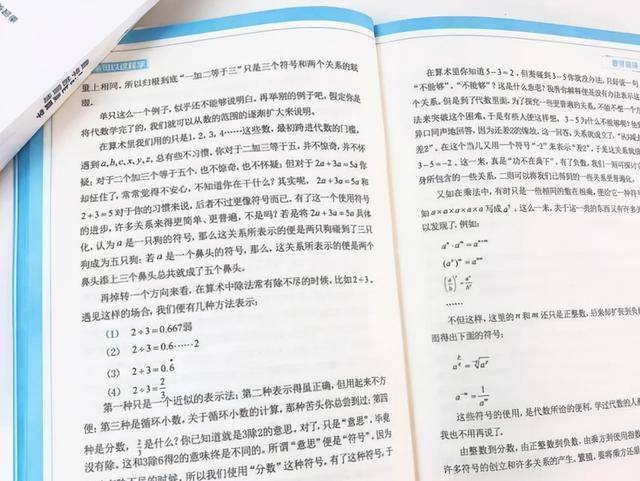 量上相同，所以归根到底“一加二等于三”只是三个符号和两个关系的联
缀。
单只这么一个例子，似乎还不能够说明白，再举别的例子吧，假定你是
将代数学完了的，我们就可以从数的范围的逐渐扩大来说明。
在算术里我们用的只是1, 2, 3, 4……这些数，最初跨进代数的门槛，
遇到a, b, c, x, y, z, 总有些不习惯，你对于二加三等于五，并不惊奇，并不怀
疑；对于二个加三个等于五个，也不惊奇，也不怀疑；但对于2a+3a=5a你
却怔住了，常常觉得不安心，不知道你在干什么？其实呢，2a+3a=5a和
2+3=5对于你的习惯来说，后者不过更像符号而已，有了这一个使用符号
的进步，许多关系来得更简单、更普遍，不是吗？若是将2a+3a=5a具体
化，认为a是一只狗的符号，那么这关系所表示的便是两只狗碰到了三只
狗成为五只狗；若a是一个鼻头的符号，那么，这关系所表示的便是两个
鼻头添上三个鼻头总共就成了五个鼻头。
再掉转一个方向来看，在算术中除法常有除不尽的时候，比如2÷3。
遇见这样的场合，我们便有几种方法表示：
(1) 2÷3=0.667弱
(2) 2÷3=0.6……2
(3) 2÷3=0.6̇
(4) 2÷3=2/3
第一种只是一个近似的表示法；第二种表示得虽正确，但用起来不方
便；第三种是循环小数，关于循环小数的计算，那种苦头你总尝到过；第四
种是分数，2/3是什么？你已知道就是3除2的意思，对了，只是“意思”，毕竟
没有除，这和3除6得2的意味终是不同的。所谓“意思”便是“符号”，因为
除不尽的时候，所以我们使用“分数”这种符号，有了这种符号，于
在算术里你知道5−3=2，但要碰到3−5你就没办法，只好说一句
“不能够”，“不能够”？这是什么意思？我替你解释便是没有办法表示这
个关系，但是到了代数里面，为了探究一些更普遍的关系，不能不想一个方
法来突破这个困难，于是有些人便这样想，3−5为什么不能够呢？他们
异口同声地回答，因为还差2的缘故，这一回答，关系就成立了，“从3减
差2”，在这个当儿又用一个符号“-2”来表示“差2”，于是这关系就成
3−5=−2。这一来，真是“功不在禹下”，有了负数，我们一则可探讨
身所包含的一些关系，二则可以将我们已得到的一些关系更普遍化。
又如在乘法中，有时只是一些相同的数在相乘，便给它一种符号
如a×a×a×a×a写成a⁵，这么一来，关于这一类的东西又有许多
以发现了，例如：
aⁿ·aᵐ=aⁿ⁺ᵐ
(aⁿ)ᵐ=aⁿᵐ
(a/b)ⁿ=aⁿ/bⁿ
……
不但这样，这里的n和m还只是正整数，后来却扩张到负
而得出下面的符号：
这些符号的使用，是代数所给的便利，学过代数的人
我也不用再说了。
由整数到分数，由正整数到负数，由乘方到使用指数
许多符号的创立和许多关系的产生、繁殖，要将乘方还原